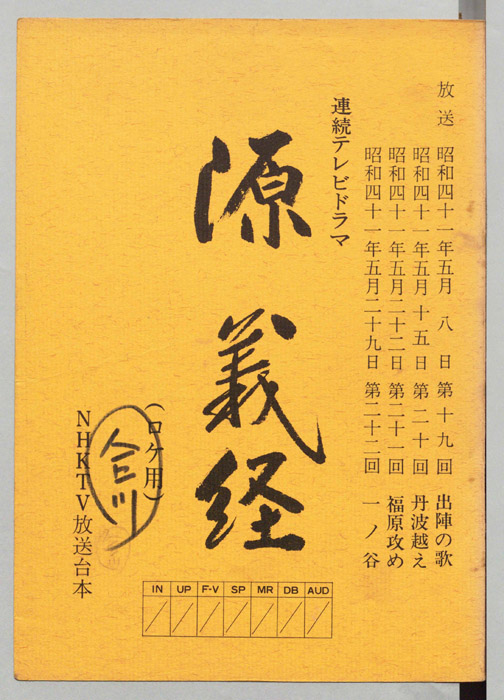 放送 昭和四十一年五月 八 日 第十九回 出陣の歌
昭和四十一年五月十五日 第二十回 丹波越え
昭和四十一年五月二十二日 第二十一回 福原攻め
昭和四十一年五月二十九日 第二十二回 一ノ谷
連続テレビドラマ
源義経
(ロケ用)
NHKTV放送台本
IN UP F-V SP MR DB AUD